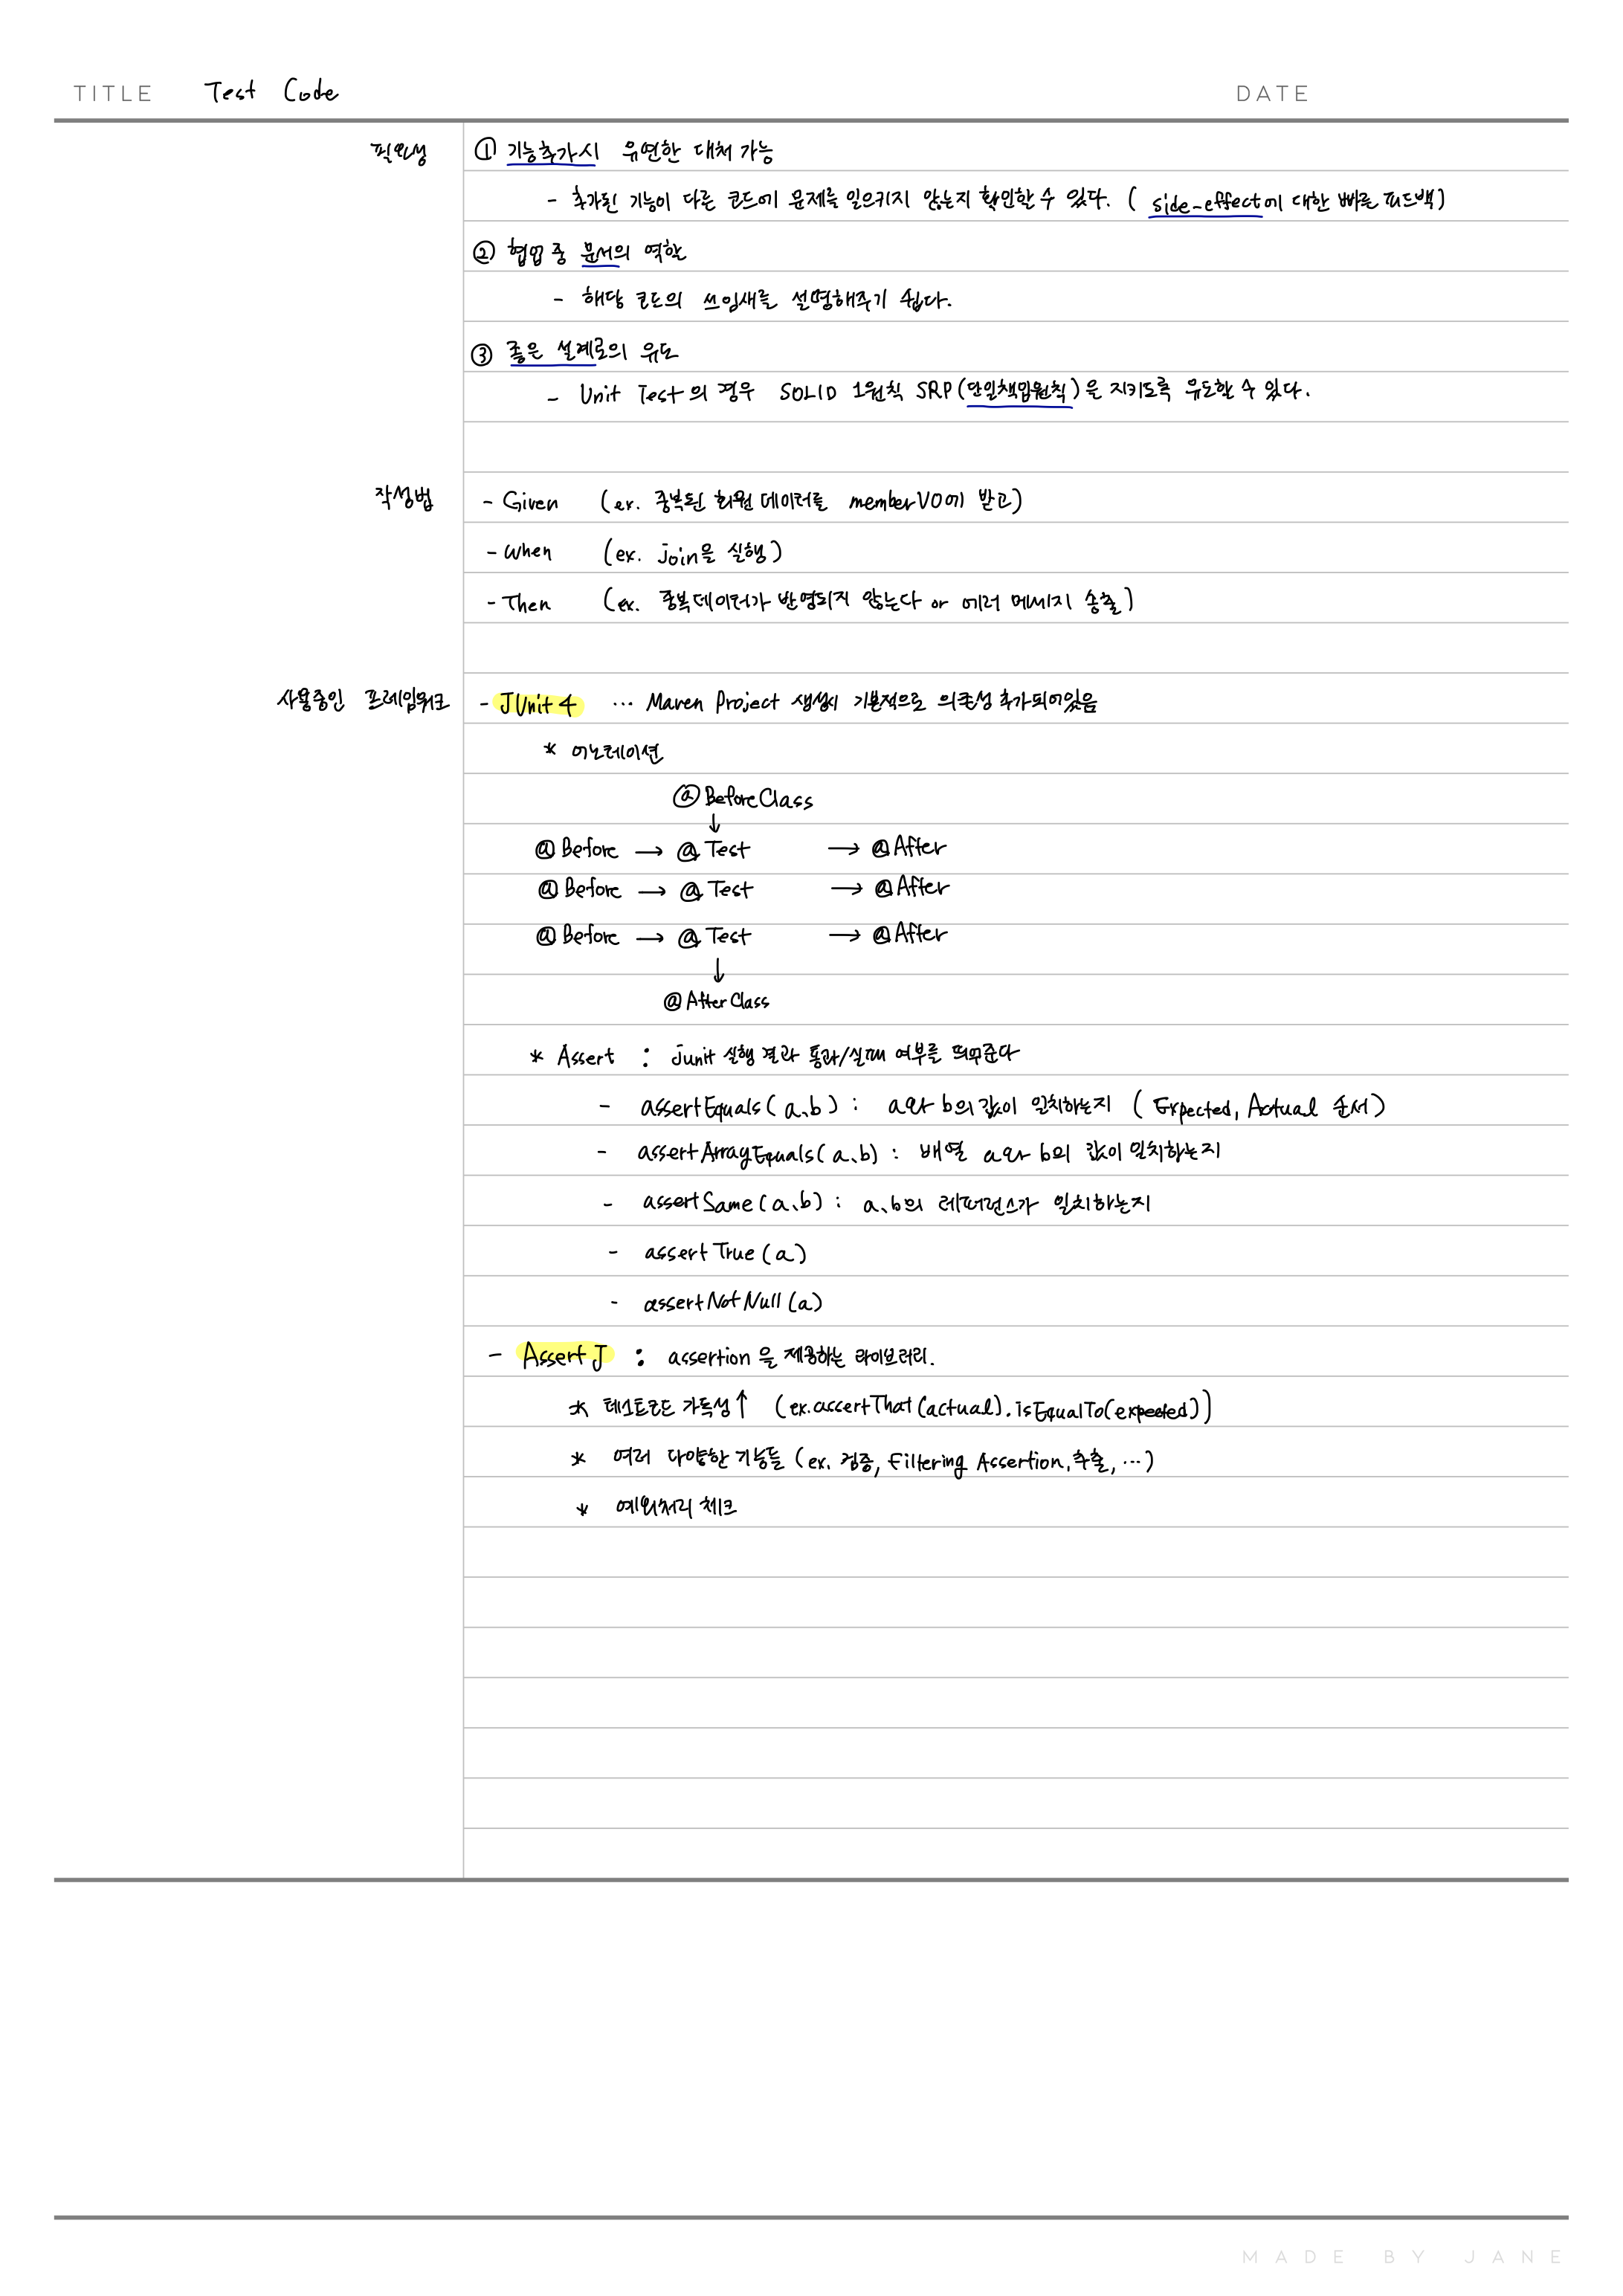 TITLE Test Code DATE
필요성 ① 기능추가시 유연한 대처 가능
- 추가된 기능이 다른 코드에 문제를 일으키지 않는지 확인할 수 있다. ( side-effect에 대한 빠른 피드백)
② 협업 중 문서의 역할
- 해당 코드의 쓰임새를 설명해주기 쉽다.
③ 좋은 설계로의 유도
- Unit Test의 경우 SOLID 1원칙 SRP(단일책임원칙)을 지키도록 유도할 수 있다.
작성법 - Given (ex. 중복된 회원 데이터를 memberVO에 받고)
- when (ex. join을 실행)
- Then (ex. 중복데이터가 반영되지 않는다 or 에러 메세지 송출)
사용중인 프레임워크 - JUnit 4 ... Maven Project 생성시 기본적으로 의존성 추가되어있음
* 어노테이션
@BeforeClass
↓
@Before → @Test → @After
@Before → @Test → @After
@Before → @Test → @After
↓
@AfterClass
* Assert : junit 실행 결과 통과/실패 여부를 띄워준다
- assertEquals(a,b) : a와 b의 값이 일치하는지 ( Expected, Actual 순서)
- assertArrayEquals(a,b) : 배열 a와 b의 값이 일치하는지
- assertSame(a,b) : a,b의 레퍼런스가 일치하는지
- assertTrue(a)
- assertNotNull(a)
- AssertJ : assertion을 제공하는 라이브러리.
* 테스트코드 가독성↑ (ex.assertThat(actual).isEqualTo(expected))
* 여러 다양한 기능들 (ex. 검증, Filtering Assertion, 추출, ...)
* 예외처리 체크
MADE BY JANE